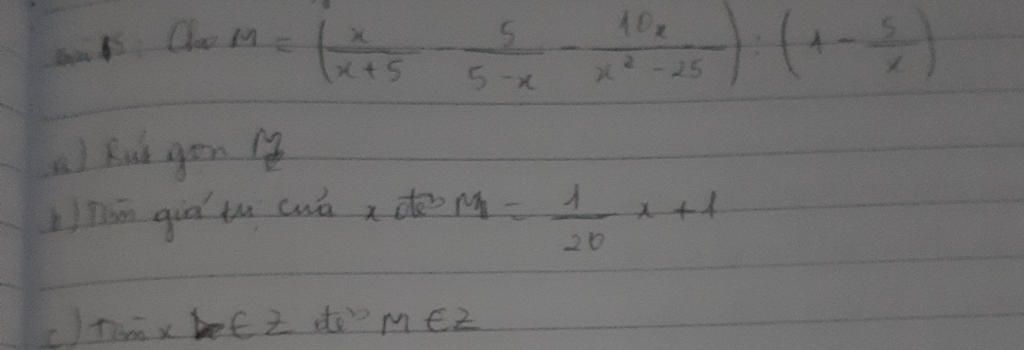 Cho M = (x/(x+5) - 5/(5-x) - 10x/(x² - 25)) : (1 - 5/x)
a) Rút gọn M
b) Tìm giá trị của x để M = 1/20 x + 1
c) Tìm x ∈ Z để M ∈ Z